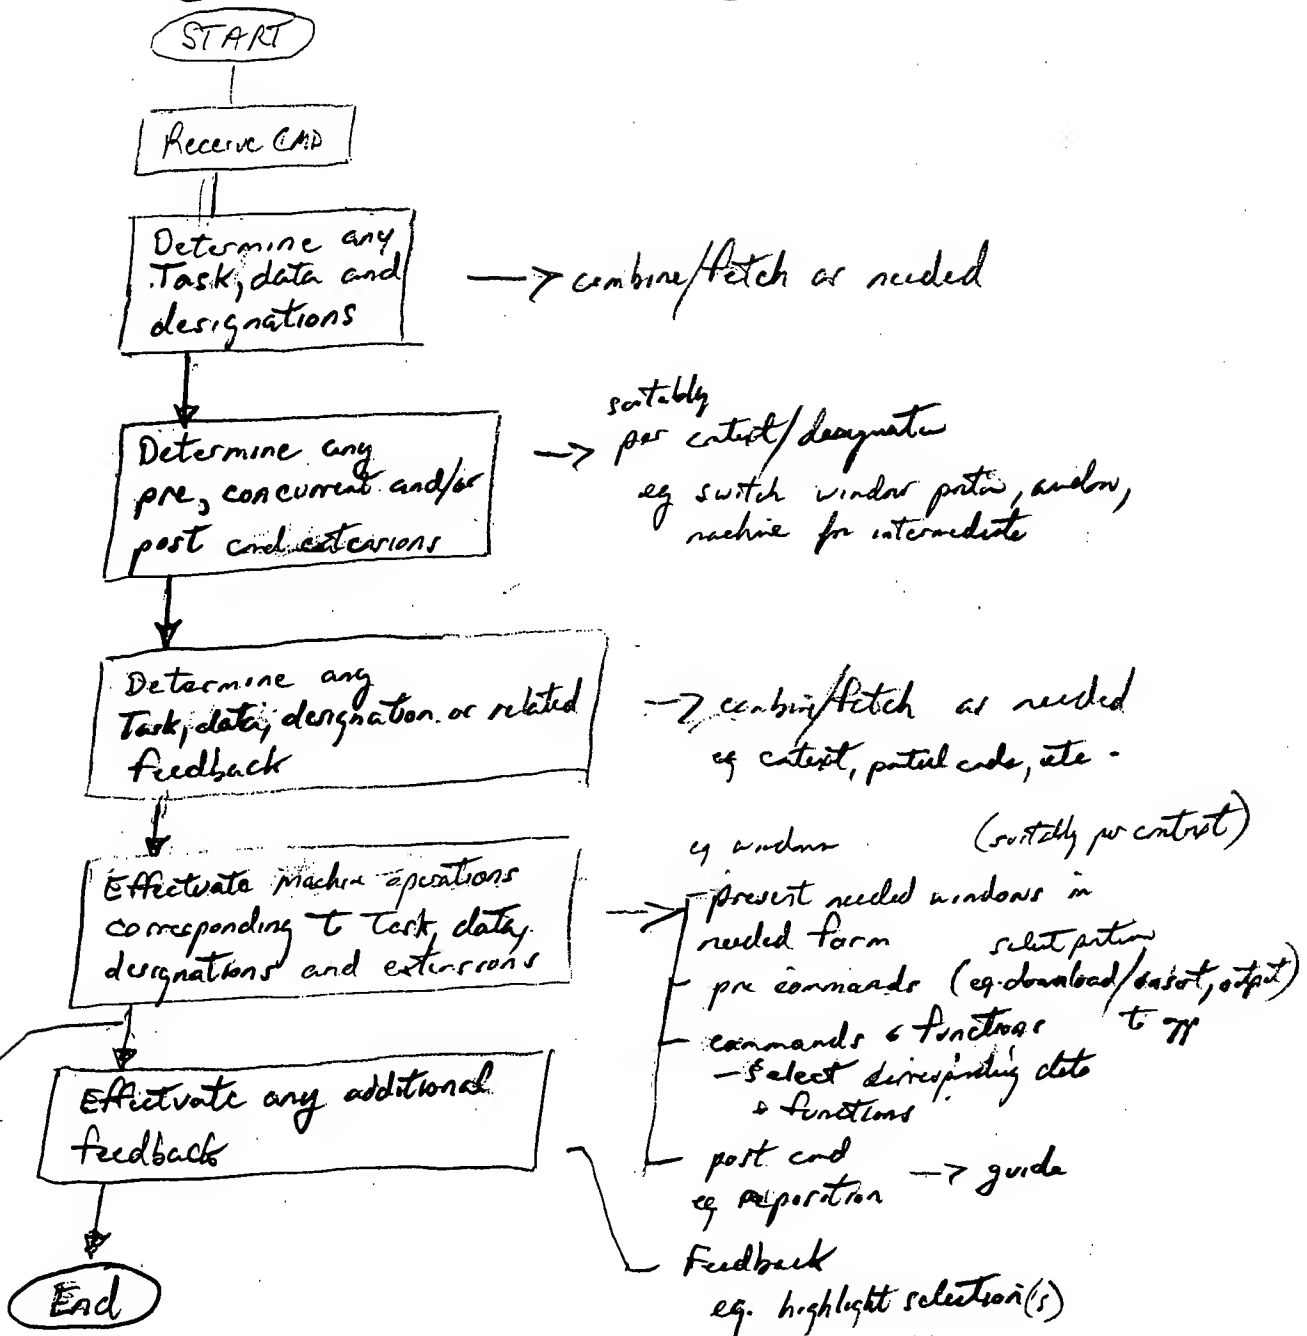 START
Receive CMD
Determine any
Task, data and
designations
combine/fetch as needed
Determine any
pre, concurrent and/or
post cmd extensions
suitably
per context/designation
eg switch window portion, window,
machine for intermediate
Determine any
Task, data, designation or related
feedback
combine/fetch as needed
eg context, partial code, etc.
Effectuate Machine operations
corresponding to Task, data,
designations and extensions
eg window (suitably per context)
- present needed windows in
needed form
select portion
- pre commands (eg. download/insert, output)
to
- commands & functions
- select data
& functions
- post cmd
eg → guide
Effectuate any additional
feedback
Feedback
eg. highlight selection(s)
End